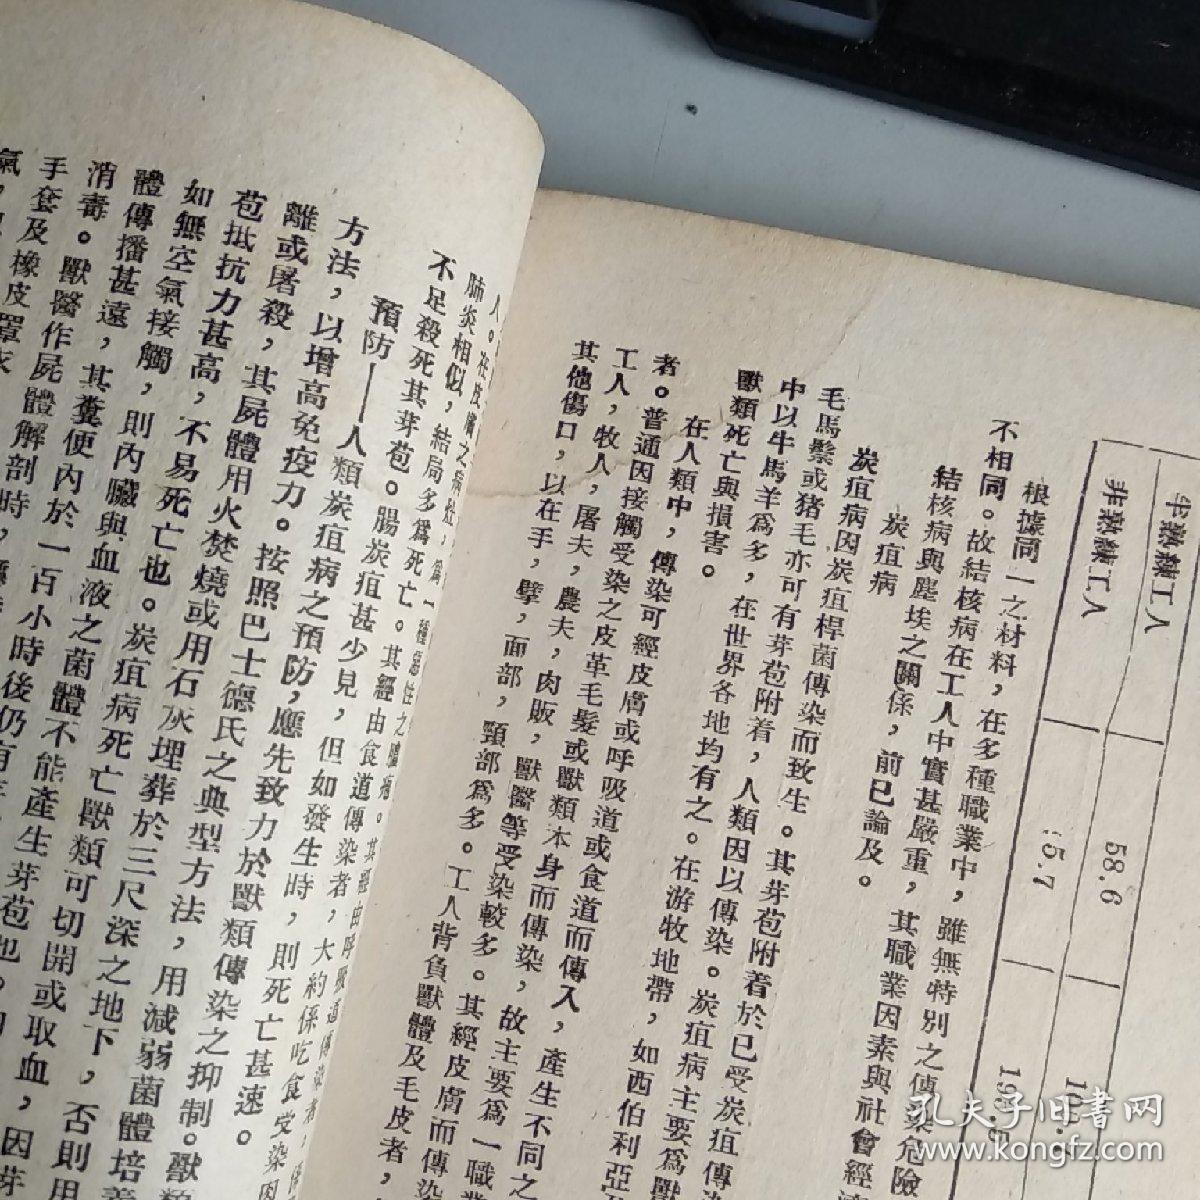 半熟練工人
58.6
10.
非熟練工人
5.7
19.
根據同一之材料，在多種職業中，雖無特別之傳染危險
不相同。故結核病在工人中實甚嚴重，其職業因素與社會經濟
結核病與塵埃之關係，前已論及。
炭疽病
炭疽病因炭疽桿菌傳染而致生。其芽苞附着於已受炭疽傳染
毛馬鬃或猪毛亦可有芽苞附着，人類因以傳染。炭疽病主要爲獸
中以牛馬羊爲多，在世界各地均有之。在游牧地帶，如西伯利亞
獸類死亡與損害。
在人類中，傳染可經皮膚或呼吸道或食道而傳入，產生不同之
者。普通因接觸受染之皮革毛髮或獸類本身而傳染，故主要爲一職業
工人，牧人，屠夫，農夫，肉販，獸醫等受染較多。其經皮膚而傳染
其他傷口，以在手，臂，面部，頸部爲多。工人背負獸體及毛皮者，
肺炎相似，結局多爲死亡。其經由食道傳染者，大約係吃食受染肉
不足殺死其芽苞。腸炭疽甚少見，但如發生時，則死亡甚速。
預防——人類炭疽病之預防，應先致力於獸類傳染之抑制。獸
方法，以增高免疫力。按照巴士德氏之典型方法，用減弱菌體培養
離或屠殺，其屍體用火焚燒或用石灰埋葬於三尺深之地下，否則用
苞抵抗力甚高，不易死亡也。炭疽病死亡獸類可切開或取血，因芽
如無空氣接觸，則內臟與血液之菌體不能產生芽苞也。
體傳播甚遠，其糞便內於一百小時後仍有
消毒。獸醫作屍體解剖時，
手套及橡皮罩衣
氣，
孔夫子旧书网
www.kongfz.com